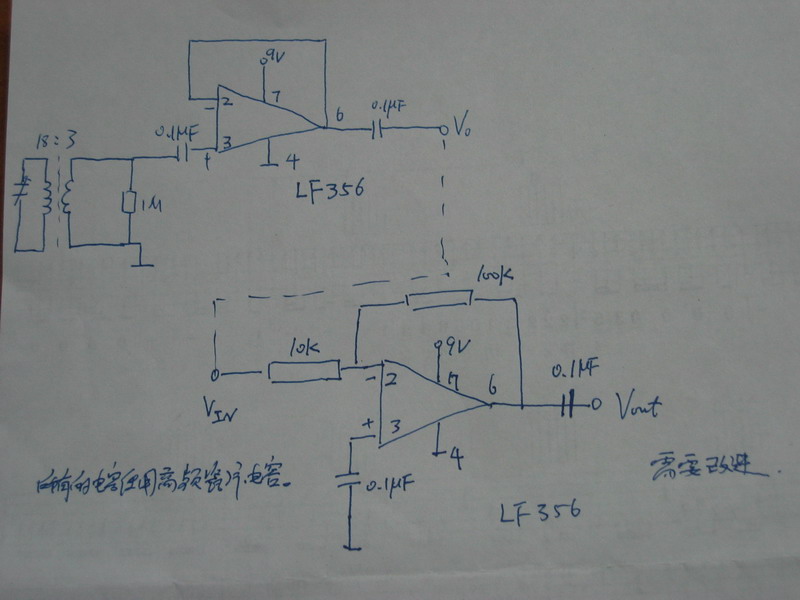 9V
7
2
-
6
0.1μF
Vo
18:3
0.1μF
3
+
4
LF356
1M
100K
10K
9V
7
2
-
6
0.1μF
VIN
Vout
+
3
4
0.1μF
所有的电容使用高频瓷片电容。
需要改进.
LF356